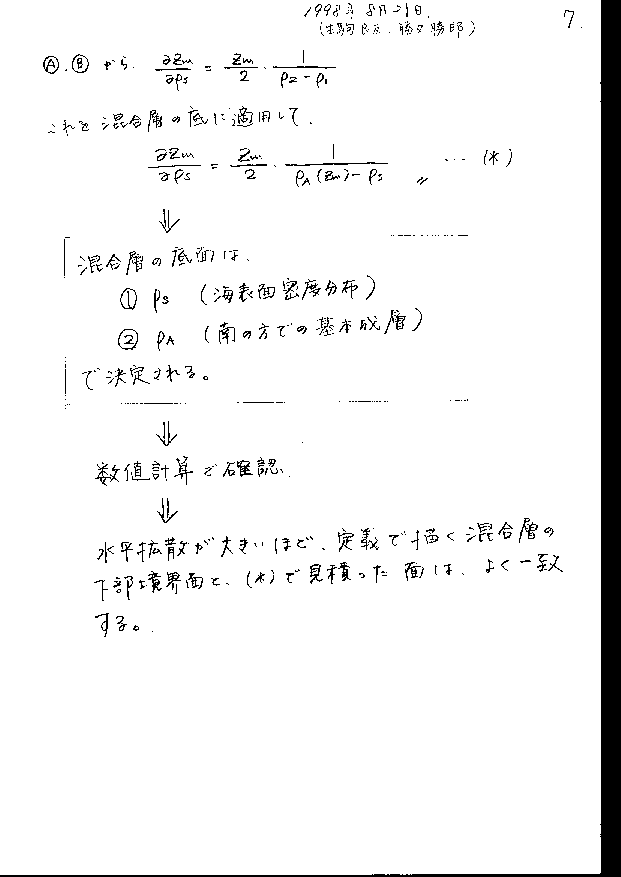 1998年 8月21日. 7.
(生駒 , 勝又勝郎)
Ⓐ, Ⓑ から, ∂Zm/∂ρs = Zm/2 · 1/(ρ2 - ρ1)
これを 混合層の底に適用して,
∂Zm/∂ρs = Zm/2 · 1/(ρA(Zm) - ρs) 〃 … (*)
⇓
混合層の底面は,
① ρs (海表面密度分布)
② ρA (南の方での基本成層)
で決定される。
⇓
数値計算で確認.
⇓
水平拡散が大きいほど、定義で描く混合層の
下部境界面と、(*)で見積った面は、よく一致
する。